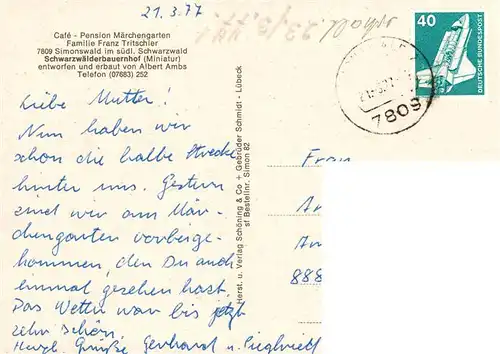 21.3.77
erhalt. 23/3.77.
Café - Pension Märchengarten
Familie Franz Tritschler
7809 Simonswald im südl. Schwarzwald
Schwarzwälderbauernhof (Miniatur)
entworfen und erbaut von Albert Ambs
Telefon (07683) 252
40
DEUTSCHE BUNDESPOST
7809
Liebe Mutter!
Nun haben wir
schon die halbe Strecke
hinter uns. Gestern
sind wir am Mär-
chengarten vorbeige-
kommen, den Du auch
einmal gesehen hast.
Das Wetter war bis jetzt
sehr schön.
Herzl. Grüße Gerhard u. Sieglinde
Herst. u. Verlag Schöning & Co + Gebrüder Schmidt, Lübeck
st Bestellnr. Simon 82
Frau
Ar
Am
888